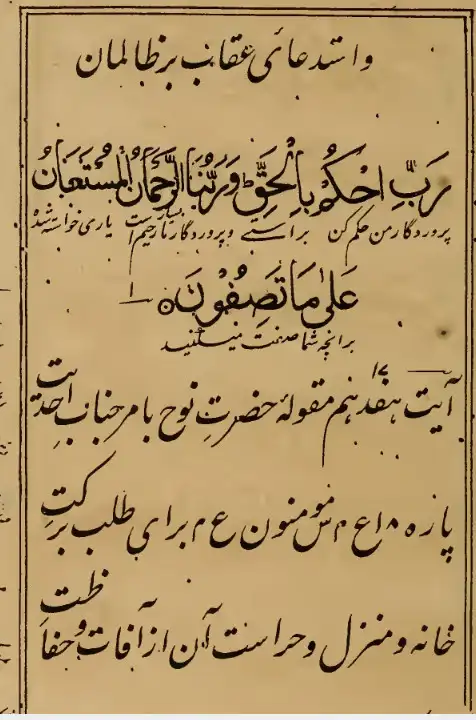 واستدعائی عقاب بر ظالمان
رَبِّ احْكُمْ بِالْحَقِّ وَرَبُّنَا الرَّحْمَانُ الْمُسْتَعَانُ
پروردگار من حکم کن براستی و پروردگار ما رحیم است یاری خواسته شد
عَلٰى مَا تَصِفُوْنَ
برانچه شما صفت میکنید
آیت هفدهم ۱۷ مقولهٔ حضرت نوح بامر جناب احدیت
پاره ۱۸ ع ۲ س مومنون ع ۲ برای طلب برکت
خانه و منزل و حراست آن از آفات و حفاظت